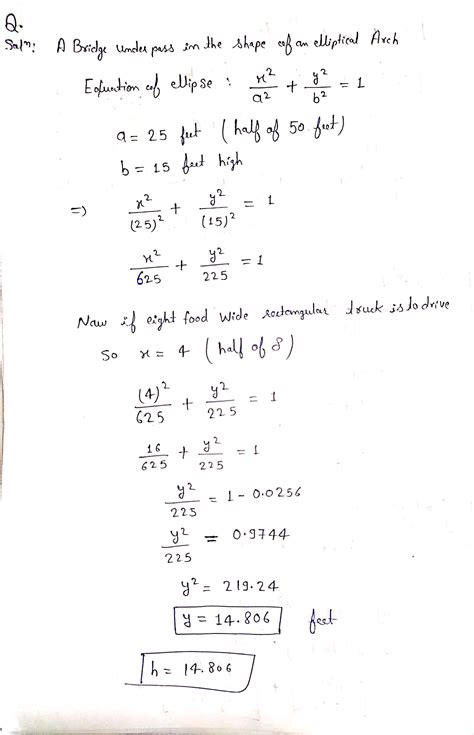 Q.
Solⁿ: A Bridge underpass in the shape of an elliptical Arch
Equation of ellipse : x²/a² + y²/b² = 1
a = 25 feet (half of 50 feet)
b = 15 feet high
=) x²/(25)² + y²/(15)² = 1
x²/625 + y²/225 = 1
Now if eight food wide rectangular truck is to drive
So x = 4 (half of 8)
(4)²/625 + y²/225 = 1
16/625 + y²/225 = 1
y²/225 = 1 - 0.0256
y²/225 = 0.9744
y² = 219.24
y = 14.806 feet
h = 14.806